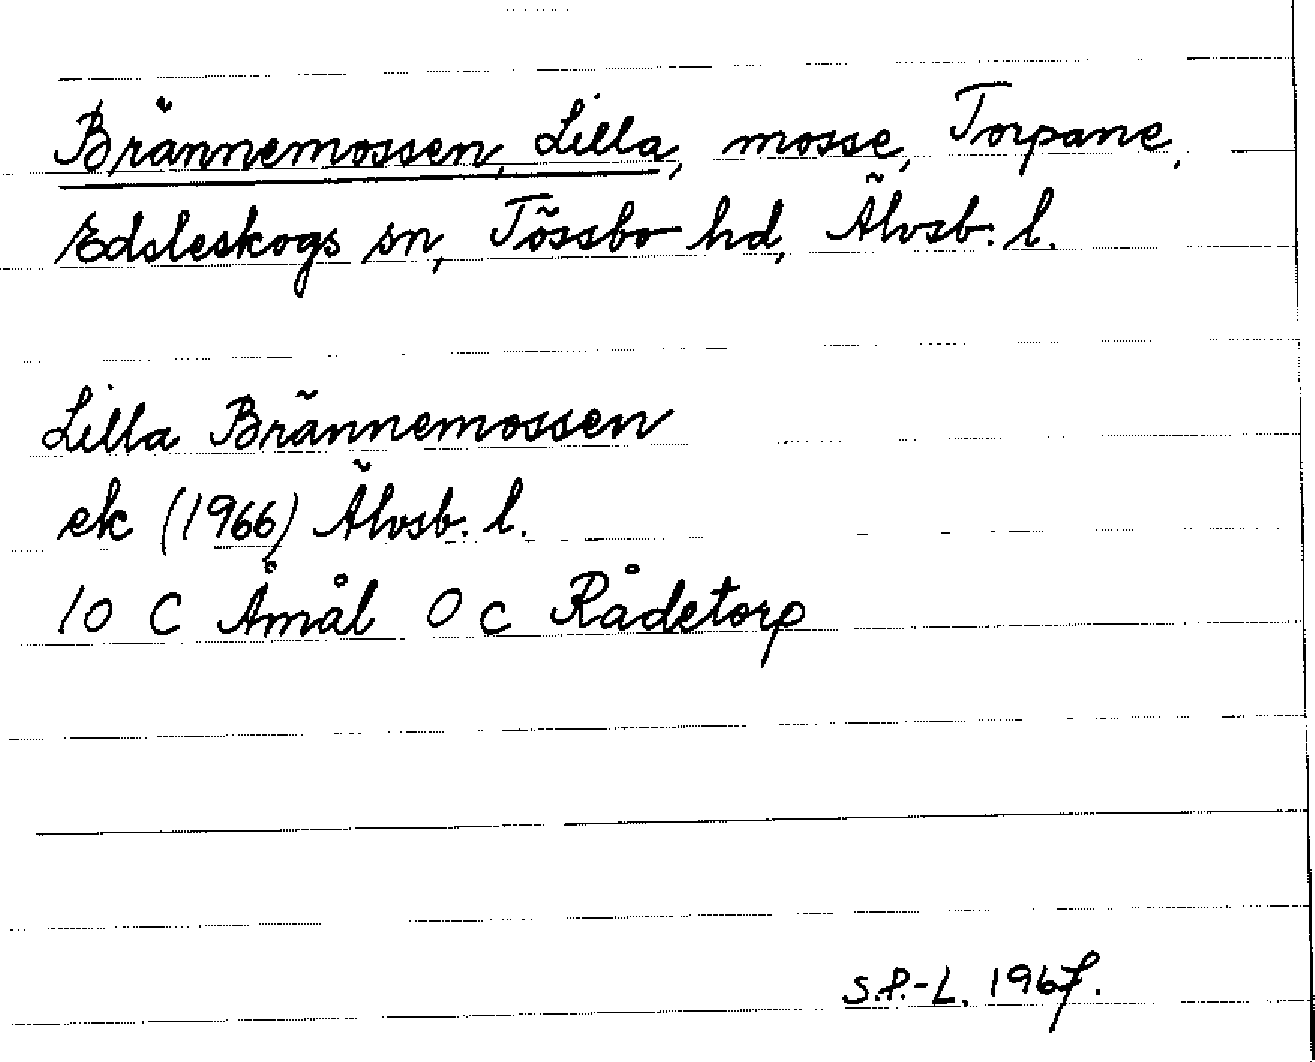 Brännemossen, Lilla, mosse, Torpane,
Edsleskogs sn, Tössbo hd, Älvsb. l.
Lilla Brännemossen
ek (1966) Älvsb. l.
10 C Åmål 0 c Rådetorp
S.P.-L. 1967.